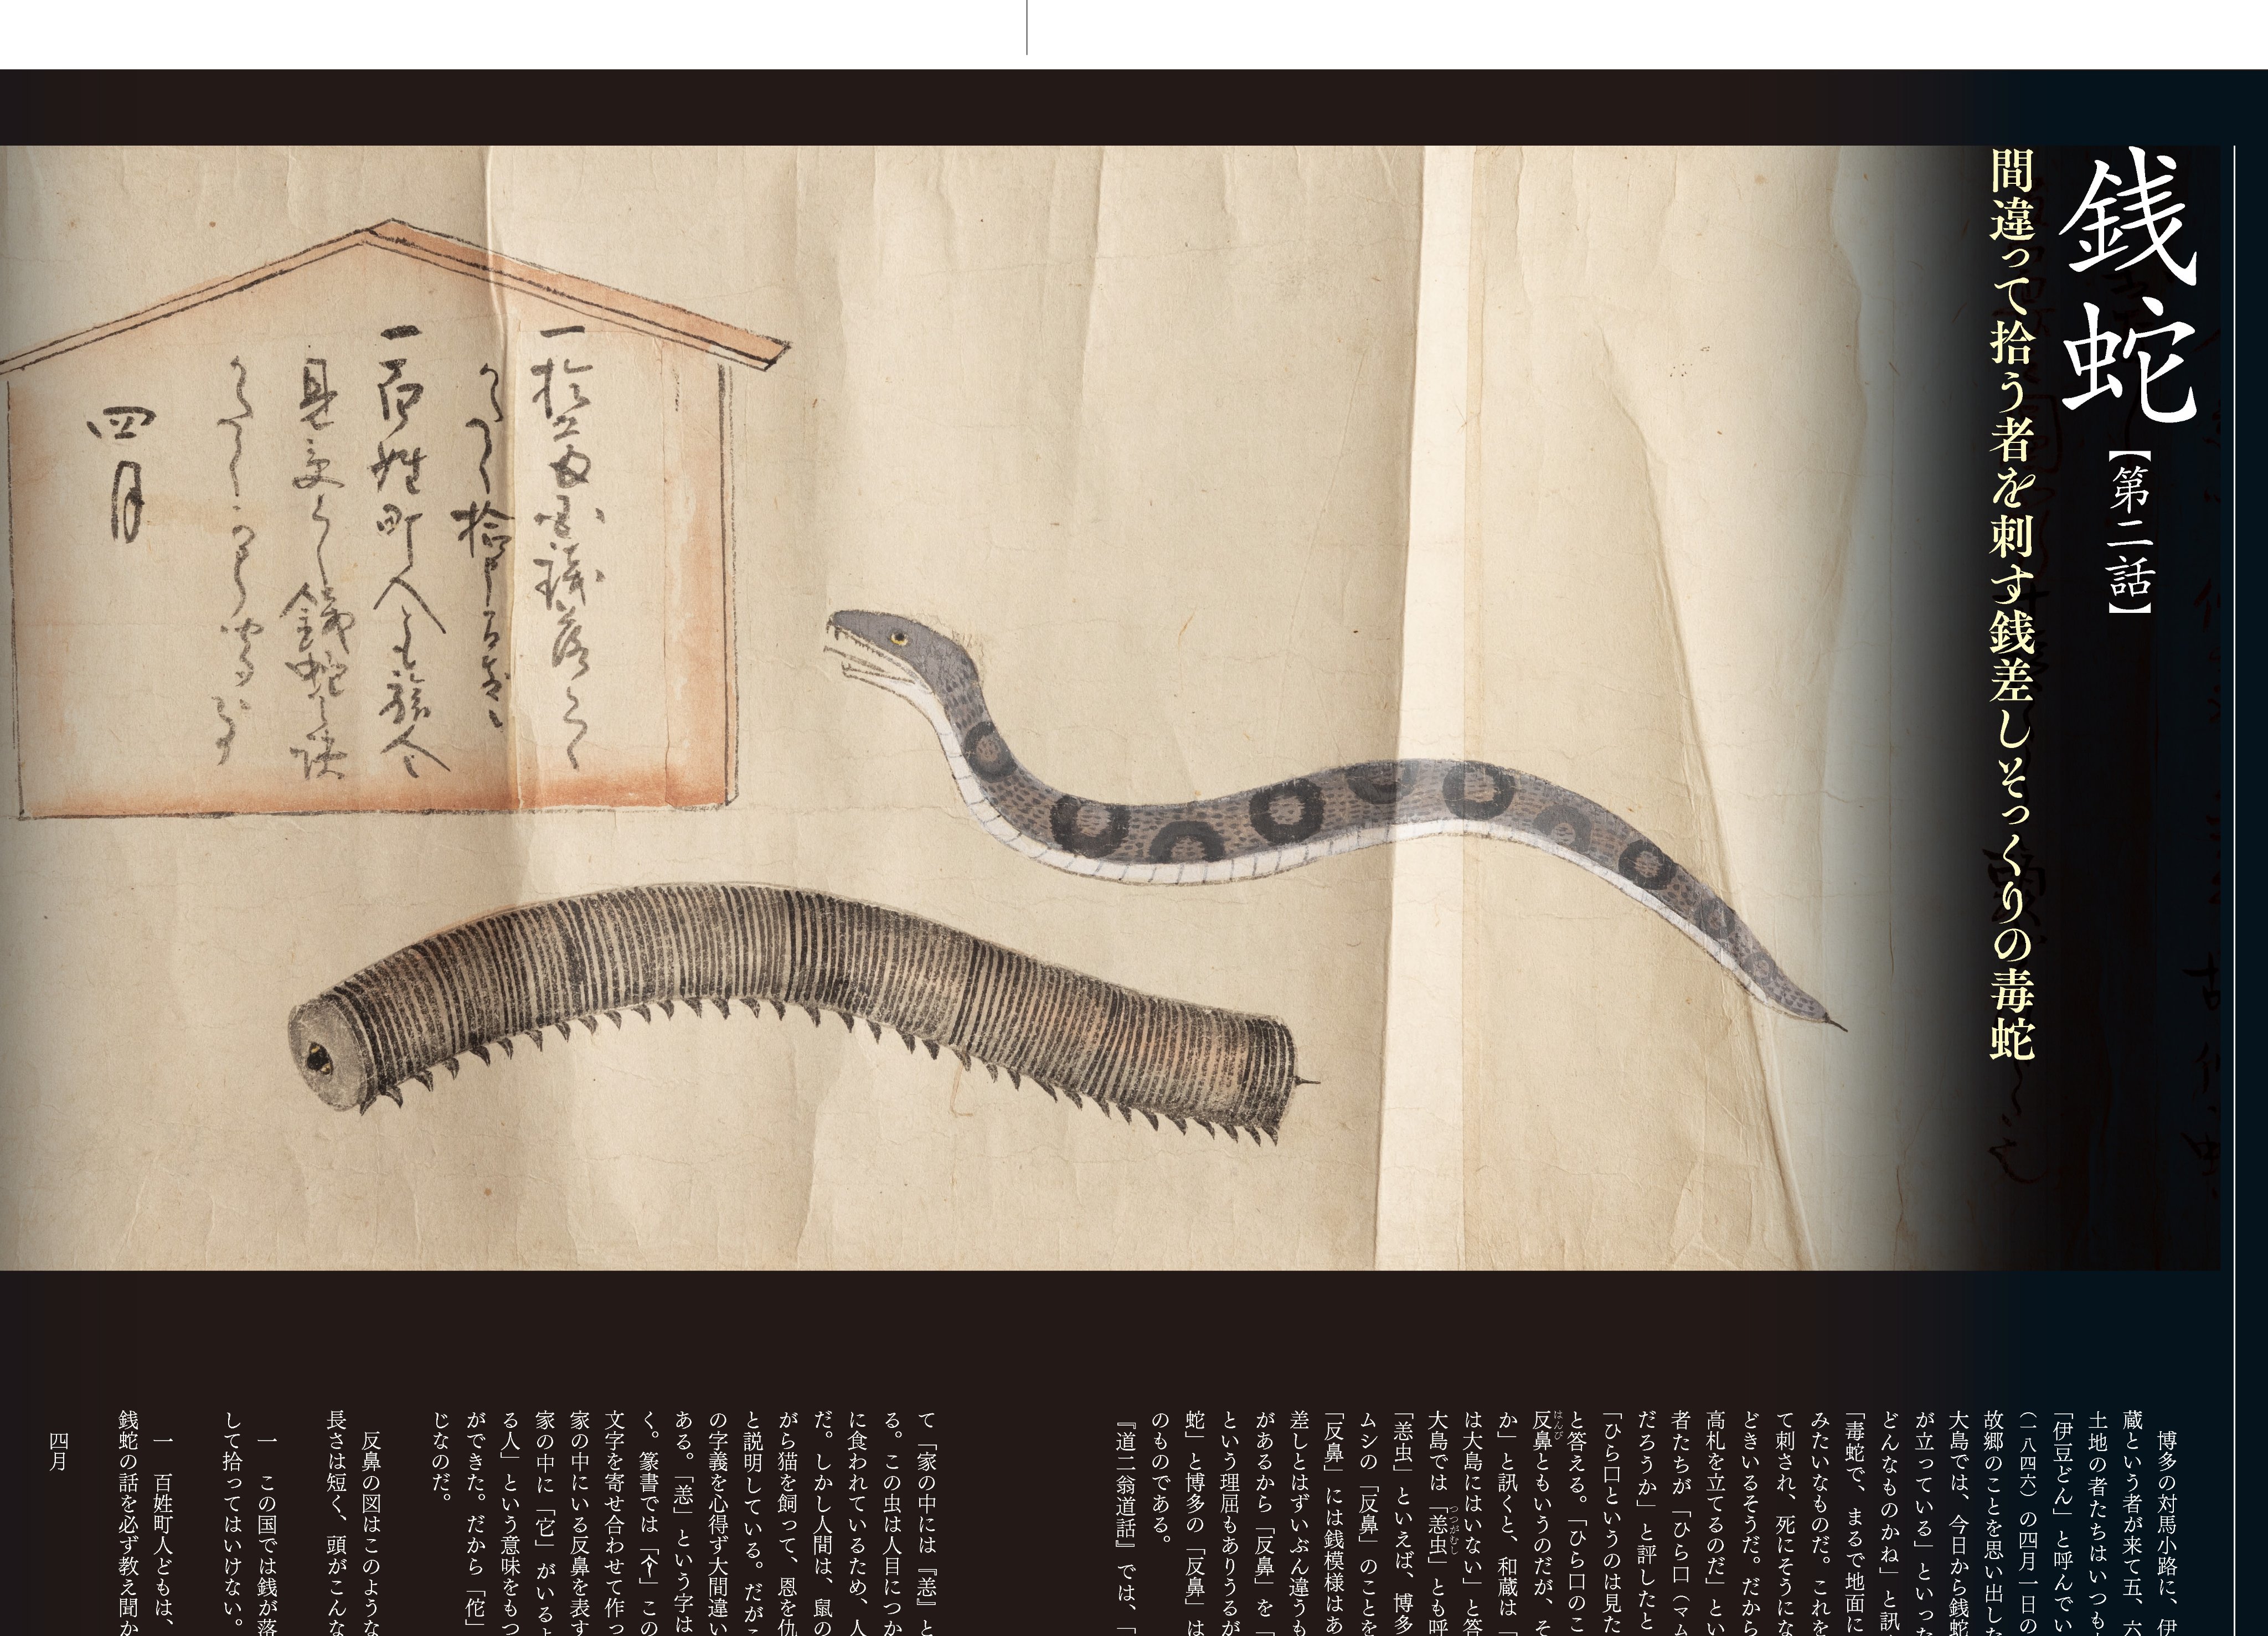 銭蛇
【第二話】
間違って拾う者を刺す銭差しそっくりの毒蛇
四月
博多の対馬小路に、伊
蔵という者が来て五、六
土地の者たちはいつも
「伊豆どん」と呼んでい
(一八四六)の四月一日の
故郷のことを思い出した
大島では、今日から銭蛇
が立っている」といった
どんなものかね」と訊
「毒蛇で、まるで地面に
みたいなものだ。これを
て刺され、死にそうにな
どきいるそうだ。だから
高札を立てるのだ」とい
者たちが「ひら口(マム
だろうか」と評したと
「ひら口というのは見た
と答える。「ひら口のこ
反鼻ともいうのだが、そ
はんび
か」と訊くと、和蔵は「
は大島にはいない」と答
大島では「恙虫」とも呼
つつがむし
「恙虫」といえば、博多
ムシの「反鼻」のことを
「反鼻」には銭模様はあ
差しとはずいぶん違うも
があるから「反鼻」を「
という理屈もありうるが
蛇」と博多の「反鼻」は
のものである。
『道二翁道話』では、「
て「家の中には『恙』と
る。この虫は人目につか
に食われているため、人
だ。しかし人間は、鼠の
がら猫を飼って、恩を仇
と説明している。だがこ
の字義を心得ず大間違い
ある。「恙」という字は
く。篆書では「」この
文字を寄せ合わせて作っ
家の中にいる反鼻を表す
家の中に「它」がいるよ
る人」という意味をもつ
ができた。だから「佗」
じなのだ。
反鼻の図はこのような
長さは短く、頭がこんな
一 この国では銭が落
して拾ってはいけない。
一 百姓町人どもは、
銭蛇の話を必ず教え聞か
四月